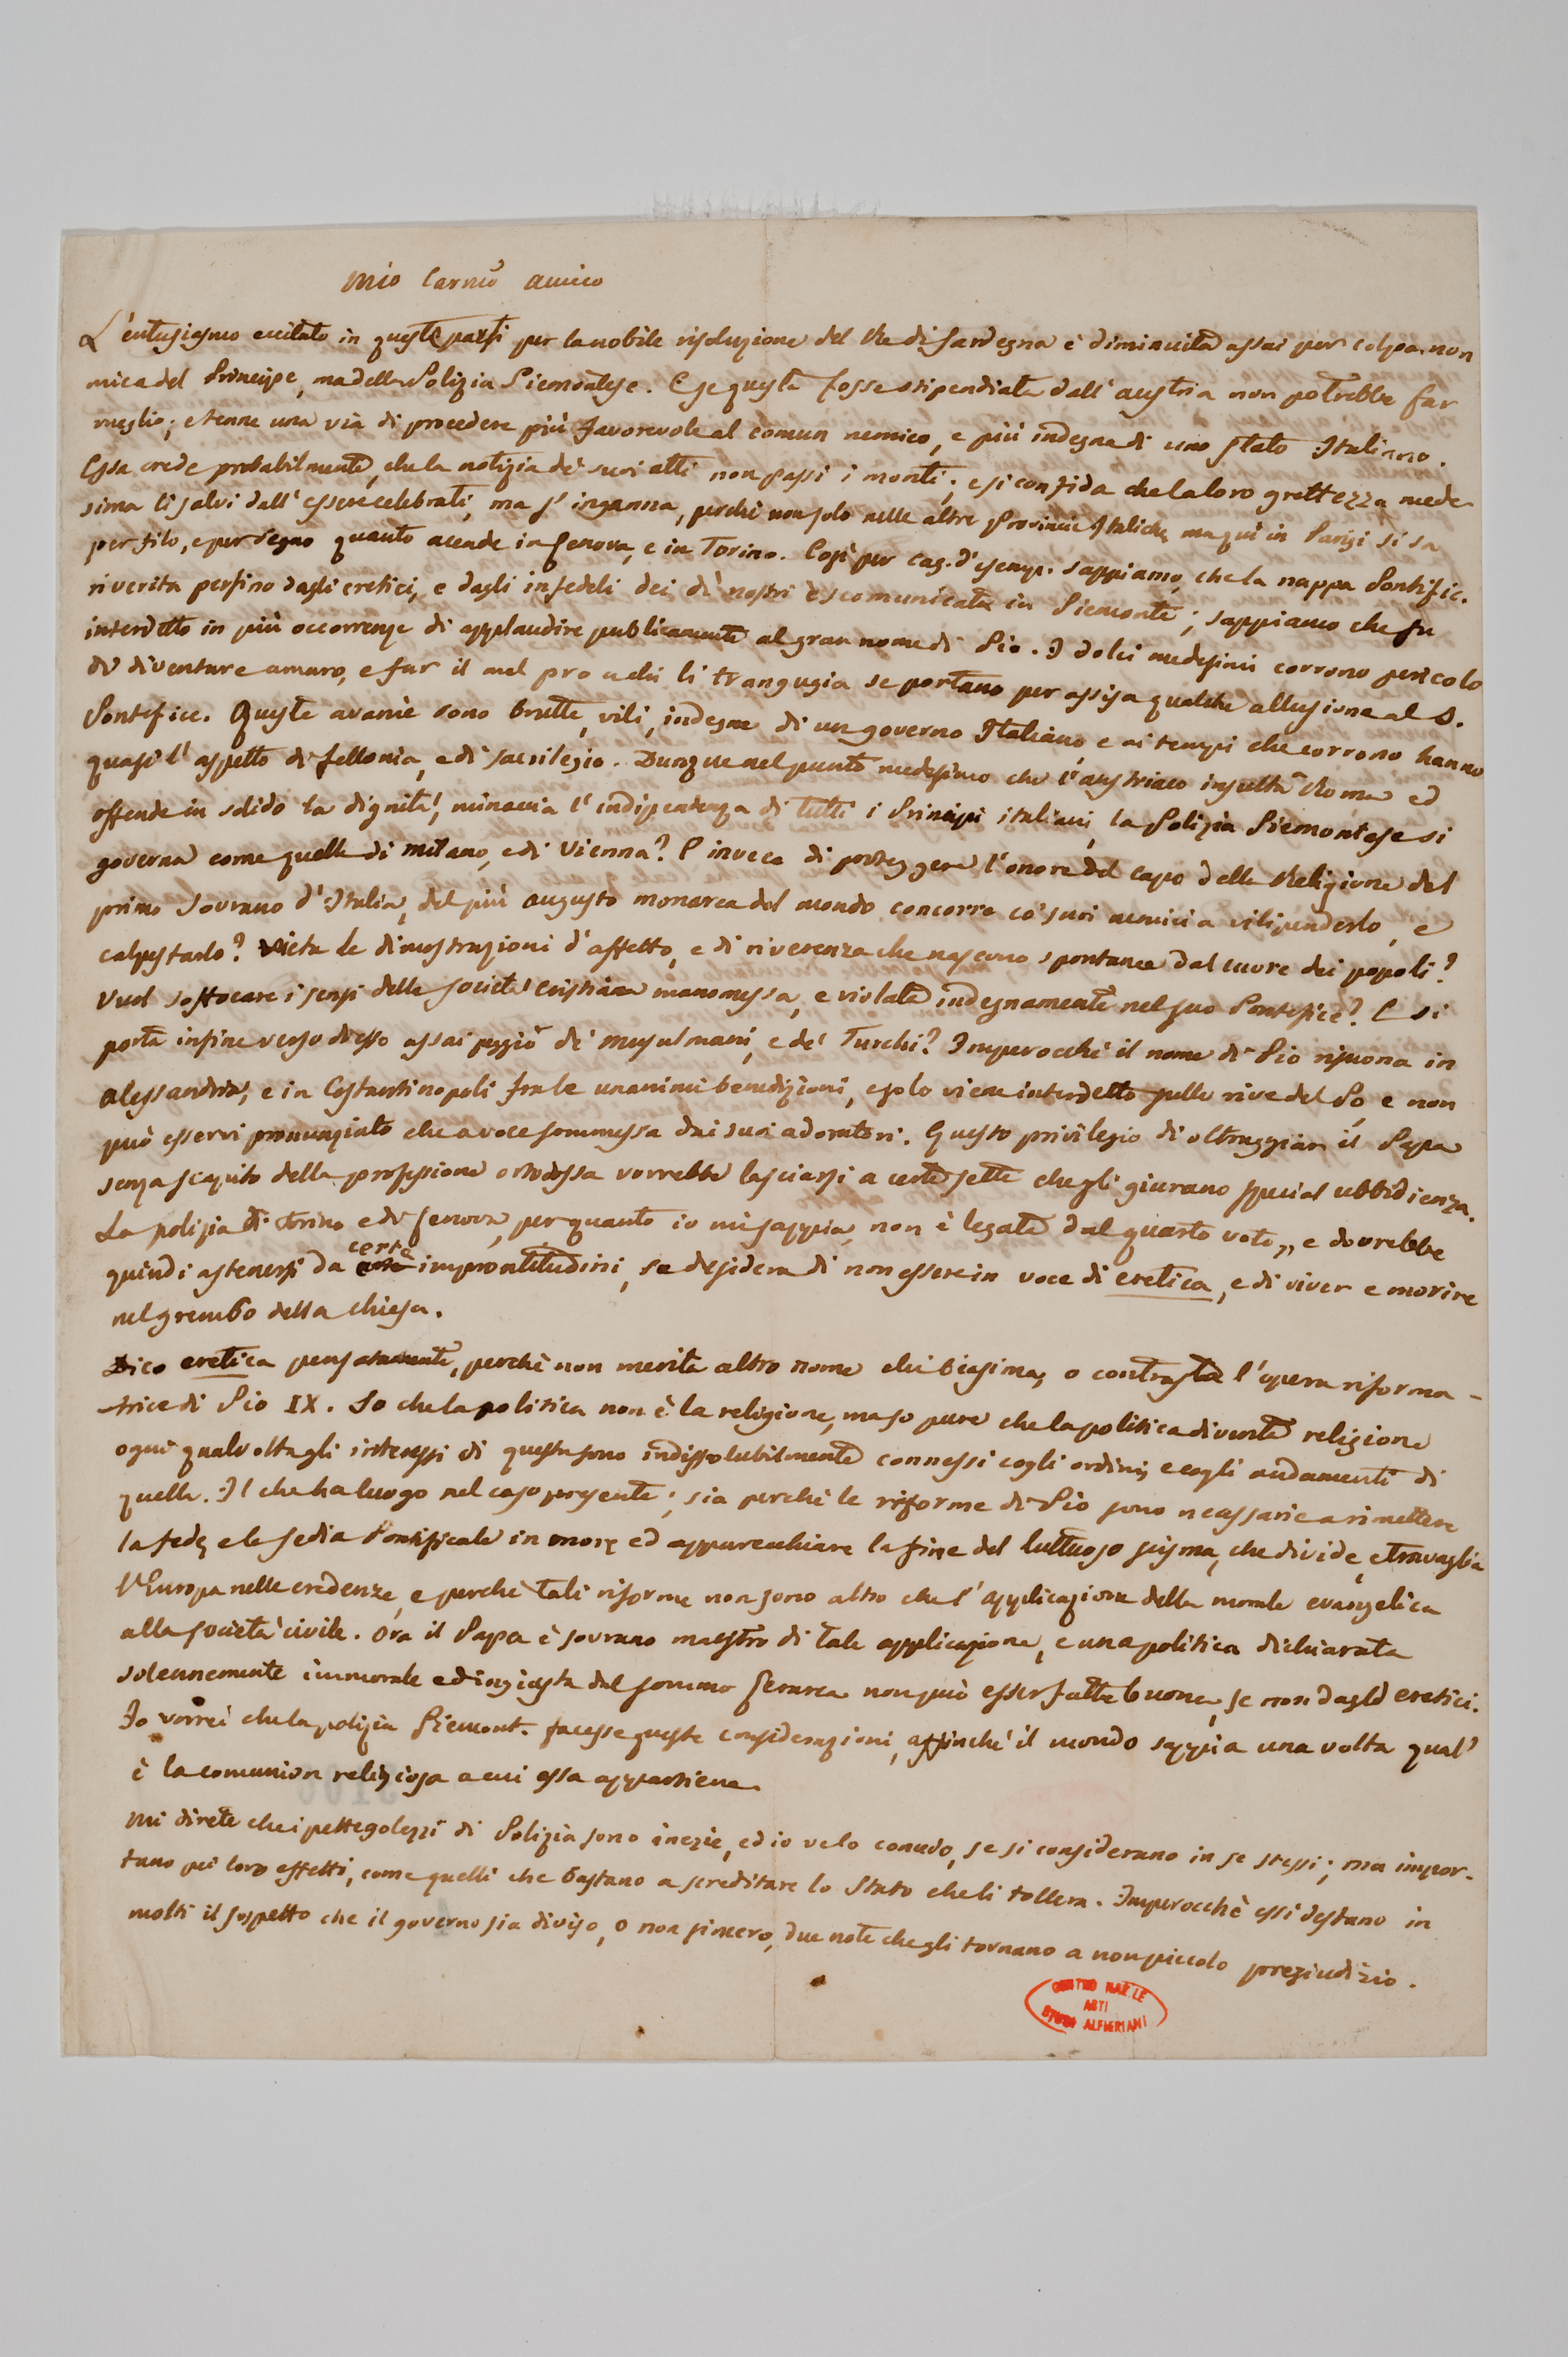 Mio Carmo amico
L'entusiasmo eccitato in queste parti per la nobile risoluzione del Re di Sardegna è diminuita assai per colpa non
mica del Principe, ma della Polizia Piemontese. E se questa fosse stipendiata dall'austria non potrebbe far
meglio; e tenne una via di procedere più favorevole al comun nemico, e più indegna di uno stato Italiano.
Essa crede probabilmente, che la notizia de' suoi atti non passi i monti; e si confida che la loro grettezza mede-
sima li salvi dall'essere celebrati, ma s'inganna, perchè non solo nelle altre Provincie Italiche, ma quì in Parigi si sa
per filo, e per segno quanto accade in Genova, e in Torino. Così per cag. d'esemp. sappiamo, che la nappa Pontific.
riverita perfino dagli eretici, e dagli infedeli dei dì nostri è scomunicata in Piemonte; sappiamo che fu
interdetto in più occorrenze di applaudire publicamente al gran nome di Pio. I dolci medesimi corrono pericolo
di diventare amaro, e far il mal pro a chi li trangugia se portano per assisa qualche allusione al S.
Pontefice. Queste avanie sono brutte, vili, indegne di un governo Italiano, e ai tempi che corrono hanno
quasi l'aspetto di fellonia, e di sacrilegio. Dunque nel punto medesimo che l'austriaco insulta Roma ed
offende in solido la dignità, minaccia l'indipendenza di tutti i Principi italiani, la Polizia Piemontese si
governa come quelle di Milano, e di Vienna? E invece di proteggere l'onore del capo della Religione del
primo Sovrano d'Italia, del più augusto monarca del mondo concorre co' suoi nemici a vilipenderlo, e
calpestarlo? Vieta le dimostrazioni d'affetto, e di riverenza che nascono spontanee dal cuore dei popoli?
Vuol soffocare i sensi della società cristiana manomessa, e violata indegnamente nel suo Pontefice? E si
porta infine verso di esso assai peggio de' Musulmani, e de' Turchi? Imperocchè il nome di Pio risuona in
Alessandria, e in Costantinopoli fra le unanimi benedizioni, e solo viene interdetto sulle rive del Po, e non
può esservi pronunziato che a voce sommessa dai suoi adoratori. Questo privilegio di oltraggiar il Papa
senza scapito della professione ortodossa vorrebbe lasciarsi a certe sette che gli giurano special ubbidienza.
La polizia di Torino e di Genova, per quanto io mi sappia, non è legata dal quarto voto,, e dovrebbe
quindi astenersi da certe improntitudini, se desidera di non essere in voce di eretica, e di viver e morire
nel grembo della chiesa.
Dico eretica pensatamente, perchè non merita altro nome chi biasima, o contrasta l'opera riforma-
trice di Pio IX. So che la politica non è la religione, ma so pure che la politica diventa religione
ogni qualvolta gli interessi di questa sono indissolubilmente connessi cogli ordini, e cogli andamenti di
quella. Il che ha luogo nel caso presente; sia perchè le riforme di Pio sono necessarie a rimettere
la fede, e la sedia Pontificale in onore ed apparecchiare la fine del luttuoso scisma, che divide, e travaglia
l'Europa nelle credenze, e perchè tali riforme non sono altro che l'applicazione della morale evangelica
alla società civile. Ora il Papa è sovrano maestro di tale applicazione, e una politica dichiarata
solennemente immorale ed ingiusta dal sommo Gerarca non può esser fatta buona, se non dagli eretici.
Io vorrei che la polizia Piemont. facesse queste considerazioni, affinchè il mondo sappia una volta qual'
è la comunion religiosa a cui essa appartiene.
Mi direte che i pettegolezzi di Polizia sono inezie, ed io ve lo concedo, se si considerano in se stessi; ma impor-
tano pei loro effetti, come quelli che bastano a screditare lo Stato che li tollera. Imperocchè essi destano in
molti il sospetto che il governo sia diviso, o non sincero, due note che gli tornano a non piccolo pregiudizio.
CENTRO NAZ.LE
ASTI
STUDI ALFIERIANI